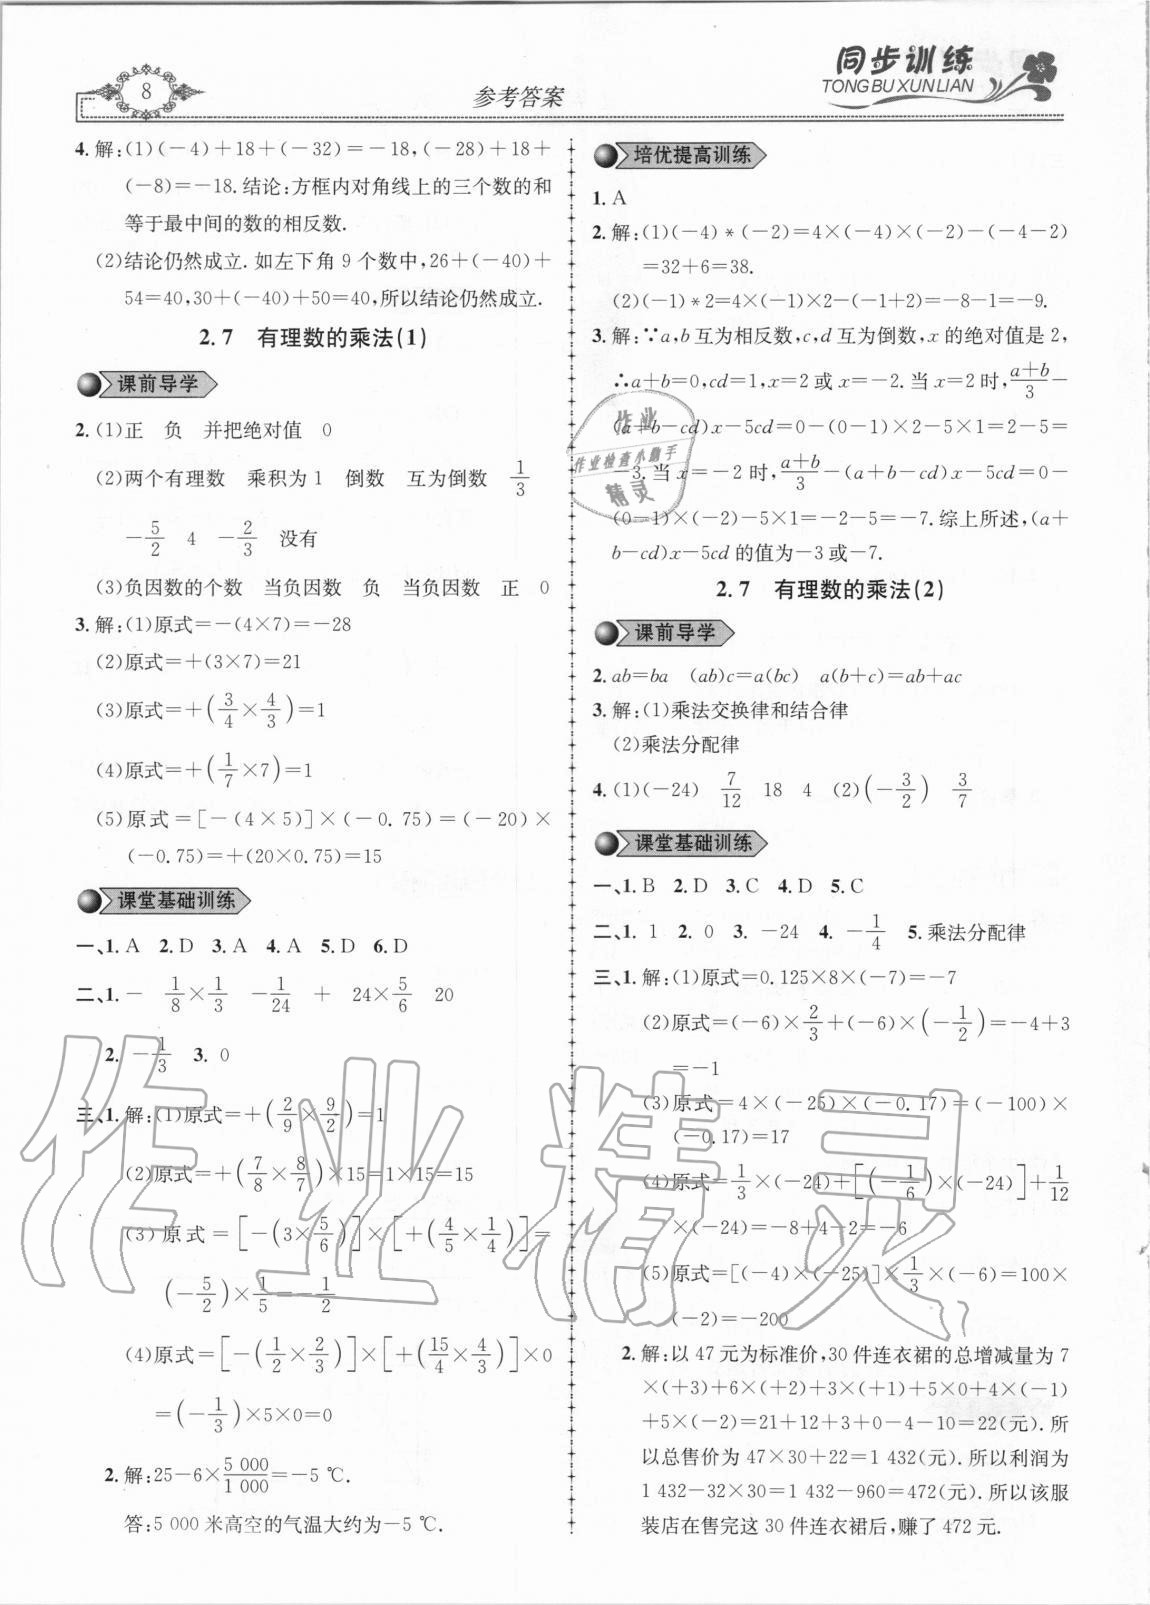 8
参考答案
同步训练
TONGBUXUNLIAN
4. 解:(1)(－4)＋18＋(－32)＝－18,(－28)＋18＋
(－8)＝－18.结论:方框内对角线上的三个数的和
等于最中间的数的相反数.
(2)结论仍然成立. 如左下角 9 个数中,26＋(－40)＋
54＝40,30＋(－40)＋50＝40,所以结论仍然成立.
2.7 有理数的乘法(1)
课前导学
2. (1)正 负 并把绝对值 0
(2)两个有理数 乘积为 1 倒数 互为倒数 1/3
－5/2 4 －2/3 没有
(3)负因数的个数 当负因数 负 当负因数 正 0
3. 解:(1)原式＝－(4×7)＝－28
(2)原式＝＋(3×7)＝21
(3)原式＝＋(3/4×4/3)＝1
(4)原式＝＋(1/7×7)＝1
(5)原式＝[－(4×5)]×(－0.75)＝(－20)×
(－0.75)＝＋(20×0.75)＝15
课堂基础训练
一、1. A 2. D 3. A 4. A 5. D 6. D
二、1. － 1/8×1/3 －1/24 ＋ 24×5/6 20
2. －1/3 3. 0
三、1. 解:(1)原式＝＋(2/9×9/2)＝1
(2)原式＝＋(7/8×8/7)×15＝1×15＝15
(3)原式＝[－(3×5/6)]×[＋(4/5×1/4)]＝
(－5/2)×1/5＝－1/2
(4)原式＝[－(1/2×2/3)]×[＋(15/4×4/3)]×0
＝(－1/3)×5×0＝0
2. 解:25－6×5 000/1 000＝－5 ℃.
答:5 000 米高空的气温大约为－5 ℃.
培优提高训练
1. A
2. 解:(1)(－4)*(－2)＝4×(－4)×(－2)－(－4－2)
＝32＋6＝38.
(2)(－1)*2＝4×(－1)×2－(－1＋2)＝－8－1＝－9.
3. 解:∵a,b 互为相反数,c,d 互为倒数,x 的绝对值是 2,
∴a＋b＝0,cd＝1,x＝2 或 x＝－2. 当 x＝2 时,a＋b/3－
(a＋b－cd)x－5cd＝0－(0－1)×2－5×1＝2－5＝
－3.当 x＝－2 时,a＋b/3－(a＋b－cd)x－5cd＝0－
(0－1)×(－2)－5×1＝－2－5＝－7.综上所述,(a＋
b－cd)x－5cd 的值为－3 或－7.
2.7 有理数的乘法(2)
课前导学
2. ab＝ba (ab)c＝a(bc) a(b＋c)＝ab＋ac
3. 解:(1)乘法交换律和结合律
(2)乘法分配律
4. (1)(－24) 7/12 18 4 (2)(－3/2) 3/7
课堂基础训练
一、1. B 2. D 3. C 4. D 5. C
二、1. 1 2. 0 3. －24 4. －1/4 5. 乘法分配律
三、1. 解:(1)原式＝0.125×8×(－7)＝－7
(2)原式＝(－6)×2/3＋(－6)×(－1/2)＝－4＋3
＝－1
(3)原式＝4×(－25)×(－0.17)＝(－100)×
(－0.17)＝17
(4)原式＝1/3×(－24)＋[(－1/6)×(－24)]＋1/12
×(－24)＝－8＋4－2＝－6
(5)原式＝[(－4)×(－25)]×1/3×(－6)＝100×
(－2)＝－200
2. 解:以 47 元为标准价,30 件连衣裙的总增减量为 7
×(＋3)＋6×(＋2)＋3×(＋1)＋5×0＋4×(－1)
＋5×(－2)＝21＋12＋3＋0－4－10＝22(元).所
以总售价为 47×30＋22＝1 432(元).所以利润为
1 432－32×30＝1 432－960＝472(元).所以该服
装店在售完这 30 件连衣裙后,赚了 472 元.
作业
作业检查小助手
精灵
作业精灵